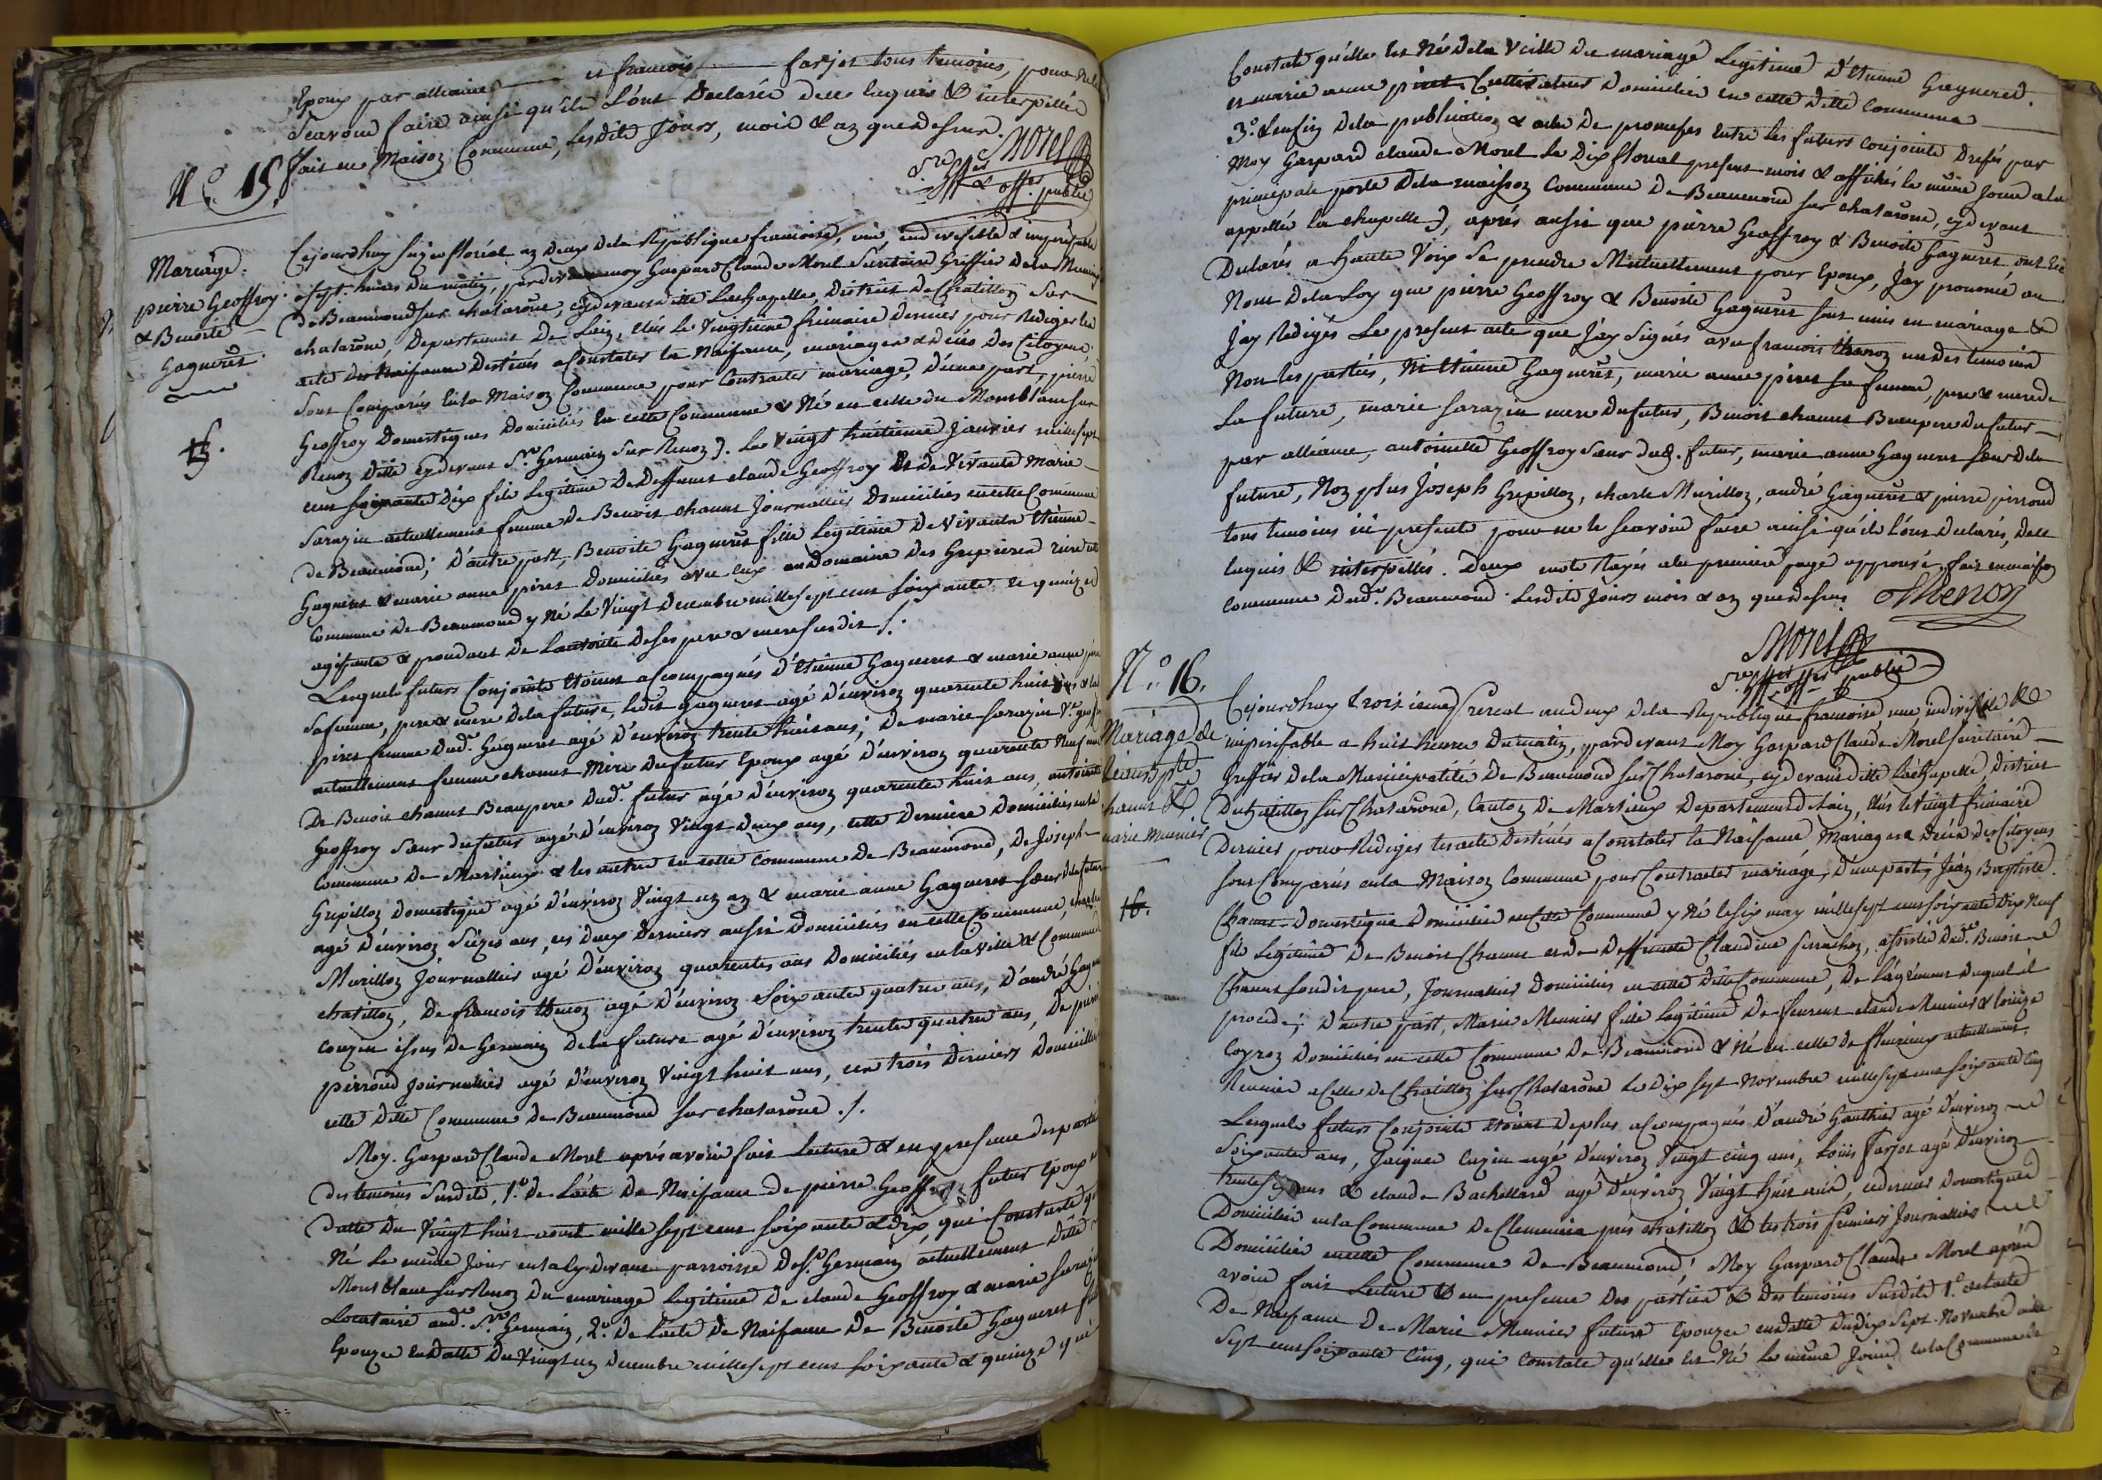 Epoux par alliance et francois farjot tous temoins, pour ne le
Scavoir faire ainsi qu'ils L'ont Declarés dece Enquis & interpellés
fait en Maison Commune, Lesdits Jours, mois & an que dessus. Morel
Sre Gffier
& offier public
N.o 15.
Mariage:
pierre Geoffroy
& Benoite
Gagneret
15.
Cejourdhuy floréal an deux dela Republique francoise, une, indivisible & imperissable
a sept heures du matin, pardevant moy Gaspard Claude Morel Secretaire Greffier Dela Municip
de Beaumond sur chalarône, cydevant ditte La Chapelle, District De Chatillon Sur
chalarône, Departement De Lain, elûs Le Vingtieme frimaire Dernier pour Rediger les
acte de Naissance Destinés a Constater La Naissance, mariages & décès Des Citoyens,
Sont Comparûs en la Maison Commune pour Contracter mariage, D'une part, pierre
Geoffroy Domestiques Domiciliés En cette Commune & Né en celle du Montblanc sur
Renon Ditte cydevant St Germain Sur Renon). Le Vingt huitieme Janvier mille sept
cent soixante Dix fils Legitime De Deffunt claude Geoffroy Et de Vivante Marie
Sarazin actuellement femme de Benoit chanut Journallier Domiciliés en cette Commune
de Beaumond; D'autre part, Benoite Gagneret fille Legitime De Vivants Etienne
Gagneret & marie anne piret Domiciliés avec eux au Domaine Des Grepieres riere cette
Commune De Beaumond y Né Le Vingt Decembre mille sept cent soixante & quinze
agissante & procedant De Lautorité De ses pere & mere susdits /.
Lesquels futurs Conjoints étoient acompagnés D'étienne Gagneret & marie anne piret
Sa femme, pere & mere Dela future, Ledit Gagneret agé d'environ quarante huit ans & lad
piret femme Dudt Gagneret agé d'environ trente huit ans; De marie Sarazin Ve geoffroy
actuellement femme chanut Mere Du futur Epoux agé d'environ quarante Neuf ans
De Benoit chanut Beaupere Dudt futur agé d'environ quarante huit ans, antoinette
Geoffroy Sœur du futur agé d'environ Vingt Deux ans, cette Derniere Domiciliés en la
Commune De Marlieux & les autres en cette Commune De Beaumond, De Joseph
Grepillon Domestique agé d'environ Vingt un an & marie anne Gagneret Sœur dela future
agé d'environ Seizes ans, ces deux Derniers aussi Domiciliés en cette Commune, charle
Murillon Journallier agé d'environ quarantes ans Domiciliés en la ville & Commune
chatillon, De francois thenon agé d'environ Soixante quatre ans, d'andré Gagneret
couzin issus de Germain dela future agé d'environ trente quatre ans, De pierre
pirroud Journallier agé d'environ Vingt huit ans, ces trois Derniers Domiciliés
cette Ditte Commune de Beaumond sur chalarône ./.
Moy Gaspard Claude Morel après avoir fait Lecture & en presence des partis
des temoins susdits, 1.o de L'acte De Naissance de pierre Geoffroy futur Epoux en
datte du Vingt huit mille sept cent soixante & dix, qui Constate qu'il
Né Le même Jour en la cydevant parroisse de St Germain actuellement Ditte
Mont blanc sur Renon du mariage Legitime De claude Geoffroy & marie Sarazin
Locataire aud. St Germain, 2.o de Lacte de Naissance De Benoite Gagneret future
Epouze en Datte du Vingt un Decembre mille sept cent soixante & quinze qui
Constate qu'elle Est Né Dela Veille du mariage Legitime D'étienne Gagneret.
et marie anne piret Cultivateurs Domiciliés en cette ditte commune
3.o Lenfin Dela publication & acte De promesses Entre les futurs conjoints Dressés par
Moy Gaspard claude Morel Le Dix floreal present mois & affichés le même Jour a la
principale porte Dela maison Commune De Beaumond sur chalarône, cydevant
appellée la chapelle), aprés aussi que pierre Geoffroy & Benoite Gagneret ont été
Declarés a Haute Voix Se prendre Mutuellement pour Epoux, Jay prononcé au
Nom Dela Loy que pierre Geoffroy & Benoite Gagneret Sont unis en mariage &
Jay Redigés Le present acte que Jay Signés avec francois thenon un des temoins
Non les partiés, Ni Etienne Gagneret, marie anne piret sa femme, pere & mere de
La future, marie Sarazin mere du futur, Benoit chanut Beaupere du futur
par alliance, antoinette Geoffroy Sœur dud. futur, marie anne Gagneret Sœur dela
future, Non plus Joseph Grepillon, charle Murillon, andré Gagneret & pierre pirroud
tous temoins icy presents pour ne le scavoir faire ainsi qu'ils L'ont Declarés, Dece
Enquis & interpellés. Deux mots Rayés a la premiere page approuvé, fait en maison
Commune Dudt Beaumond Lesdits Jours mois & an que dessus thenon
Morel
Sre Gffier
& offier public
N.o 16.
Mariage de
Jean Bpte
chanut &
marie Munier
16.
Cejourdhuy troisieme prereal an deux dela Republique francoise, une indivisible &
imperissable a huit heures Du matin, pardevant Moy Gaspard Claude Morel Secretaire
Greffier de la Municipalité De Beaumond sur Chalarone, cydevant ditte La Chapelle, District
De Chatillon sur Chalarône, Canton De Marlieux Departement de Lain, elûs le Vingt frimaire
Dernier pour Rediger les acte Destinés a Constater La Naissance Mariages & Décès Des Citoyens
Sont Comparus en la Maison Commune pour Contracter mariage, D'une part, Jéan Baptiste
Chanut Domestique Domiciliés en Cette Commune y Né le Six may mille sept cent soixante Dix Neuf
fils Legitime De Benoit Chanut et de Deffunte Claudine assisté Dudt Benoit
Chanut sondit pere, Journallier Domiciliés en cette Ditte Commune, De Lagrément Duquel il
procéde; D'autre part, Marie Munier fille Legitime De claude Munier & Louize
Coyron Domiciliés en cette Commune De Beaumond & Né en celle de fleurieux actuellement
Reunie a Celle de Chatillon sur Chalarône Le Dix sept Novembre mille sept cent soixante cinq
Lesquels futurs Conjoints étoient De plus acompagnés D'andré Gauthier agé d'environ
Soixante ans, Jacques Cuzin agé d'environ Vingt cinq ans, Louis Farjot agé d'environ
trente ans & claude Bachellard agé d'environ Vingt huit ans, ce dernier Domestique
Domiciliés en la Commune De Clemencia près chatillon & les trois premiers Journalliers
Domiciliés en cette Commune De Beaumond; Moy Gaspard Claude Morel après
avoir fait Lecture & en presence Des partiés & Des temoins Susdits 1.o de Lacte
De Naissance De Marie Munier future Epouze en Datte Du Dix Sept Novembre mille
Sept cent soixante Cinq, qui Constate qu'elle Est Né Le même Jour en la Commune de